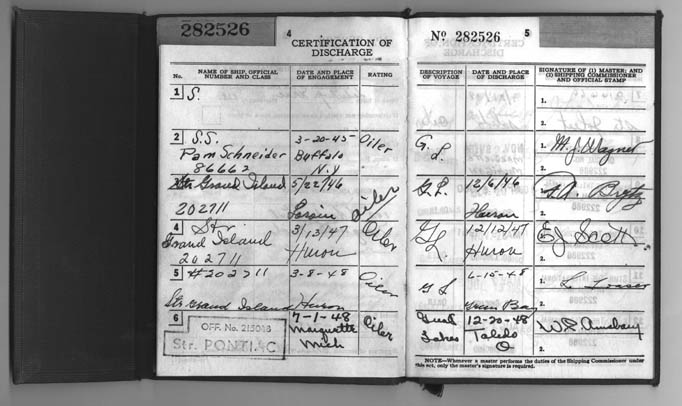 282526
4
CERTIFICATION OF
DISCHARGE
No.
NAME OF SHIP, OFFICIAL
NUMBER AND CLASS
DATE AND PLACE
OF ENGAGEMENT
RATING
1 S.
2 S.S. 3-20-45 Oiler
Pam Schneider Buffalo
86662 N.Y
3 Str Grand Island 5/22/46 Oiler
202711 Lorain
4 Str 3/13/47 Oiler
Grand Island Huron
202711
5 #202711 3-8-48 Oiler
Str Grand Island Huron
6 OFF. No. 215058 7-1-48 Oiler
Str. PONTIAC Marquette
Mich
No 282526 5
DESCRIPTION
OF VOYAGE
DATE AND PLACE
OF DISCHARGE
SIGNATURE OF (1) MASTER; AND
(2) SHIPPING COMMISSIONER
AND OFFICIAL STAMP
1.
2.
G. 1. M. J. Wagner
L. 2.
G.L. 12/6/46 1.
Huron 2.
G 12/12/47 1. E J Scott
L. Huron 2.
6-15-48 1.
G L 2.
Great 12-20-48 1.
Lakes Toledo 2.
O
NOTE—Whenever a master performs the duties of the Shipping Commissioner under
this act, only the master's signature is required.